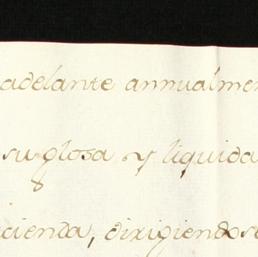 adelante annualmen
su glosa y liquida
cienda, dirigiendose